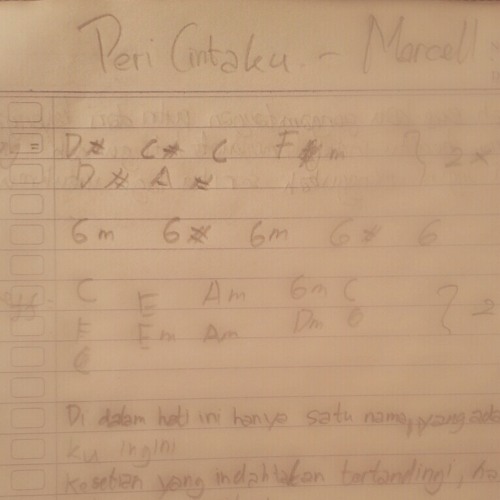 Peri Cintaku - Marcell
= D# C# C F m } 2x
D# A #
Gm G# Gm G# G
C E Am Gm C
F Em Am Dm G } 2
C
Di dalam hati ini hanya satu nama, yang ada
ku ingini
kesetian yang indah takan tertandingi, ha